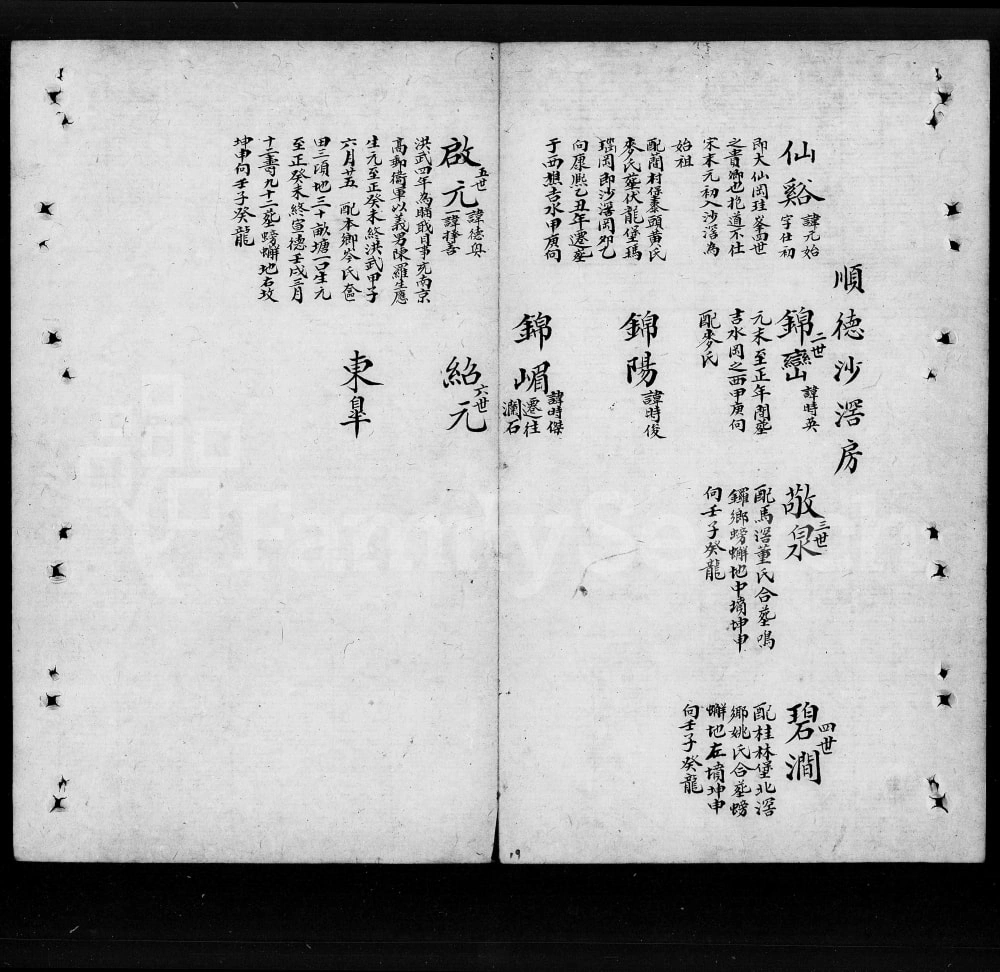 順德沙滘房
仙谿 諱元始
字仕初
即大仙岡珪峯四世
之貴卿也抱道不仕
宋末元初入沙滘為
始祖
配簡村堡泰頭黃氏
麥氏葬伏龍堡瑪
瑙岡即沙滘岡卯乙
向康熙乙丑年遷葬
于西樵吉水甲庚向
二世
錦巒 諱時英
元末至正年間葬
吉水岡之西甲庚向
配麥氏
錦陽 諱時俊
錦嵋 諱時傑
遷往
瀾石
三世
敬泉
配馬滘董氏合葬鳴
鑼鄉螃蠏地中墳坤申
向壬子癸龍
四世
碧澗
配桂林堡北滘
鄉姚氏合葬螃
蠏地左墳坤申
向壬子癸龍
五世
啟元 諱德奧
一諱擇善
洪武四年為瞞戢目事充南京
高郵衛軍以義男陳羅生應
生元至正癸未終洪武甲子
六月廿五 配本鄉岑氏奩
田三頃地三十畝塘一口生元
至正癸未終宣德壬戌三月
十二壽九十二葬螃蠏地右坟
坤申向壬子癸龍
六世
紹元
東臯
19
FamilySearch